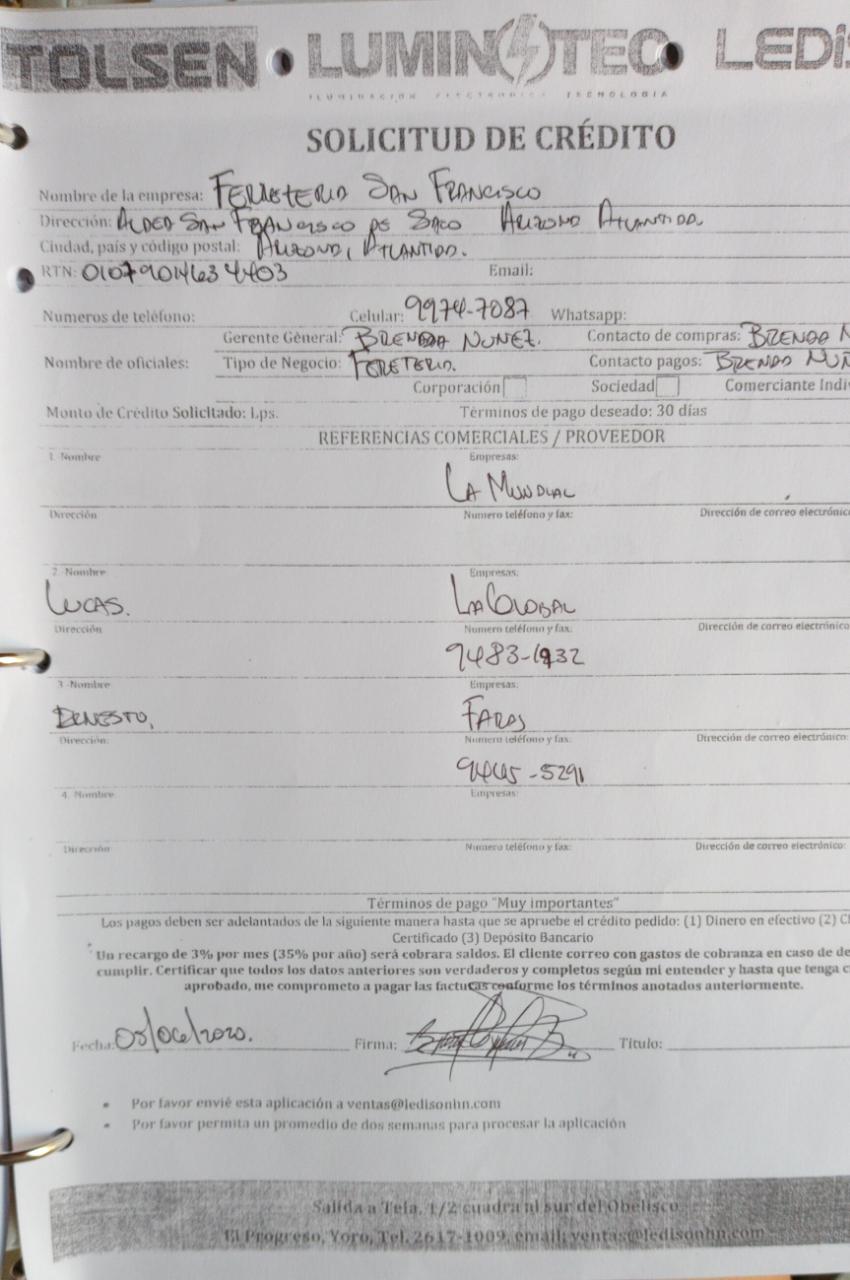 TOLSEN LUMINOTEC LEDiS
ILUMINACION ELECTRONICA TECNOLOGIA
SOLICITUD DE CRÉDITO
Nombre de la empresa: FERRETERIA SAN FRANCISCO
Dirección: ALDEA SAN FRANCISCO DE SACO ARIZONA ATLANTIDA.
Ciudad, país y código postal: ARIZONA, ATLANTIDA.
RTN: Email:
Numeros de teléfono: Celular: 9974-7087 Whatsapp:
Gerente Géneral: BRENDA NUÑEZ. Contacto de compras: BRENDA N
Nombre de oficiales: Tipo de Negocio: FERETERIA. Contacto pagos: BRENDA NUÑ
Corporación Sociedad Comerciante Indiv
Monto de Crédito Solicitado: Lps. Términos de pago deseado: 30 días
REFERENCIAS COMERCIALES / PROVEEDOR
1. Nombre Empresas:
LA MUNDIAL
Dirección Numero teléfono y fax: Dirección de correo electrónico
2. Nombre Empresas:
LUCAS. LA GLOBAL
Dirección Numero teléfono y fax: Dirección de correo electrónico
9483-1932
3. Nombre Empresas:
ERNESTO, FARAS
Dirección: Numero teléfono y fax: Dirección de correo electrónico:
9445-5291
4. Nombre Empresas:
Dirección: Numero teléfono y fax: Dirección de correo electrónico:
Términos de pago "Muy importantes"
Los pagos deben ser adelantados de la siguiente manera hasta que se apruebe el crédito pedido: (1) Dinero en efectivo (2) C
Certificado (3) Depósito Bancario
Un recargo de 3% por mes (35% por año) será cobrara saldos. El cliente correo con gastos de cobranza en caso de de
cumplir. Certificar que todos los datos anteriores son verdaderos y completos según mi entender y hasta que tenga c
aprobado, me comprometo a pagar las facturas conforme los términos anotados anteriormente.
Fecha: 03/06/2020. Firma: Titulo:
• Por favor envié esta aplicación a ventas@ledisonhn.com
• Por favor permita un promedio de dos semanas para procesar la aplicación
Salida a Tela, 1/2 cuadra al sur del Obelisco
El Progreso, Yoro, Tel. 2617-1009, email: ventas@ledisonhn.com